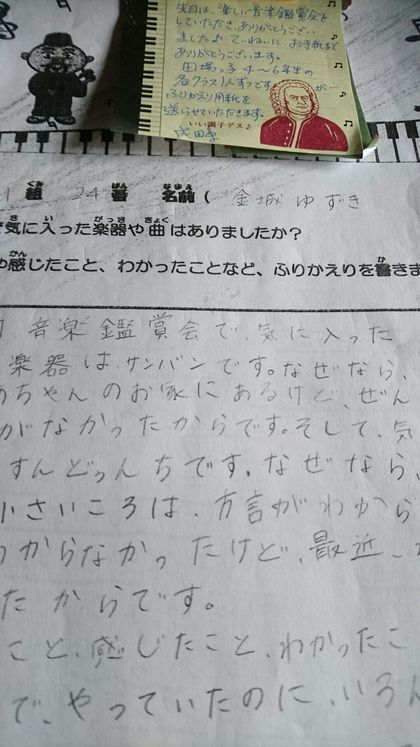 先日は、楽しい音楽鑑賞会を
していただき、ありがとうござい
ました♪ ていねいに、お手紙まで
ありがとうございます。
田場っ子 4～6年生の
各クラス1人ずつですが
ふりかえり用紙を
送らせていただきます。
いい調子デス♪
1 組 24 番 名前( 金城 ゆずき
気に入った楽器や曲はありましたか?
や感じたこと、わかったことなど、ふりかえりを書きま
音楽鑑賞会で、気に入った
楽器はサンバンです。なぜなら、
ちゃんのお家にあるけど、ぜん
がなかったからです。そして、気
すんどぅんちです。なぜなら、
小さいころは、方言がわから
からなかったけど、最近、
たからです。
こと、感じたこと、わかったこ
で、やっていたのに、いろん